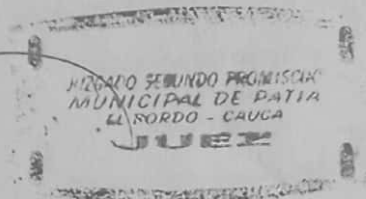 JUZGADO SEGUNDO PROMISCUO
MUNICIPAL DE PATIA
EL BORDO - CAUCA
JUEZ